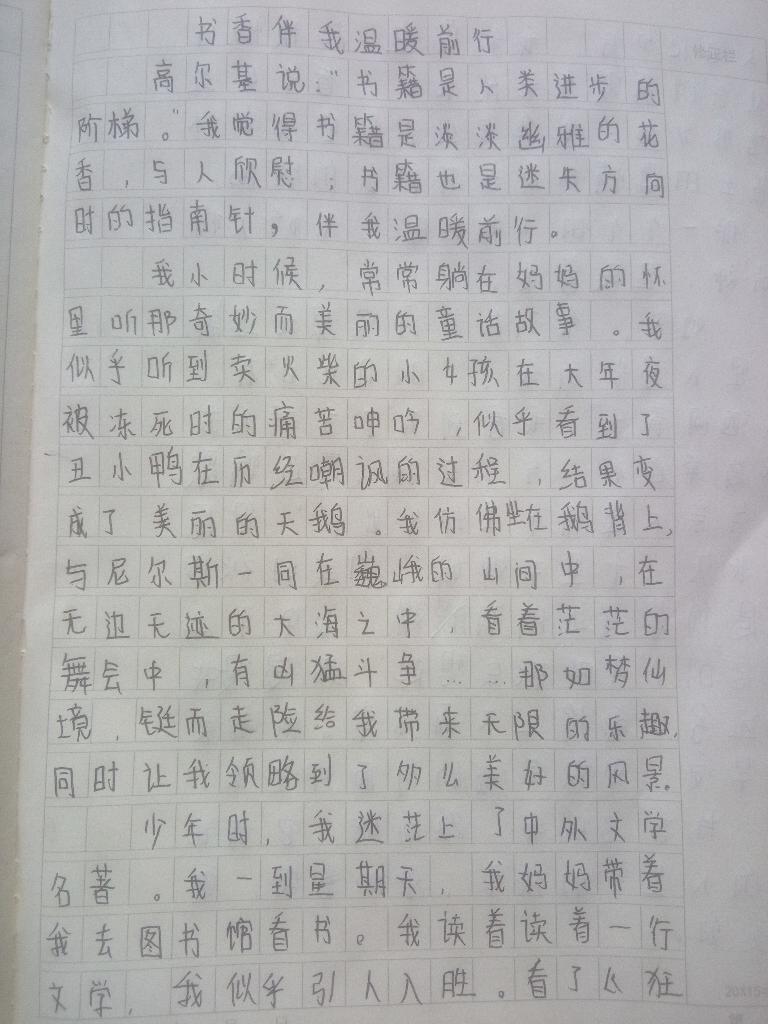 书香伴我温暖前行
高尔基说："书籍是人类进步的
阶梯。"我觉得书籍是淡淡幽雅的花
香，与人欣慰；书籍也是迷失方向
时的指南针，伴我温暖前行。
我小时候，常常躺在妈妈的怀
里听那奇妙而美丽的童话故事。我
似乎听到卖火柴的小女孩在大年夜
被冻死时的痛苦呻吟，似乎看到了
丑小鸭在历经嘲讽的过程，结果变
成了美丽的天鹅。我仿佛坐在鹅背上，
与尼尔斯一同在巍峨的山间中，在
无边无迹的大海之中，看着茫茫的
舞会中，有凶猛斗争……那如梦仙
境，铤而走险给我带来无限的乐趣，
同时让我领略到了多么美好的风景。
少年时，我迷茫上了中外文学
名著。我一到星期天，我妈妈带着
我去图书馆看书。我读着读着一行
文学，我似乎引人入胜。看了以狂